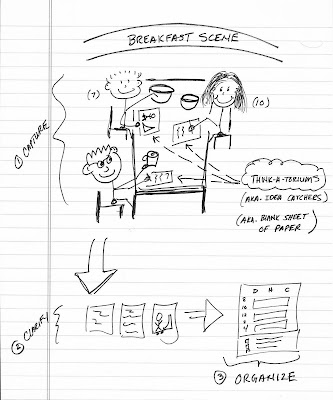 BREAKFAST SCENE
(7)
(10)
① CAPTURE
THINK-A-TORIUMS
(AKA. IDEA CATCHERS)
(AKA. BLANK SHEET
OF PAPER)
② CLARIFY
D N C
8
10
12
2
4
③ ORGANIZE